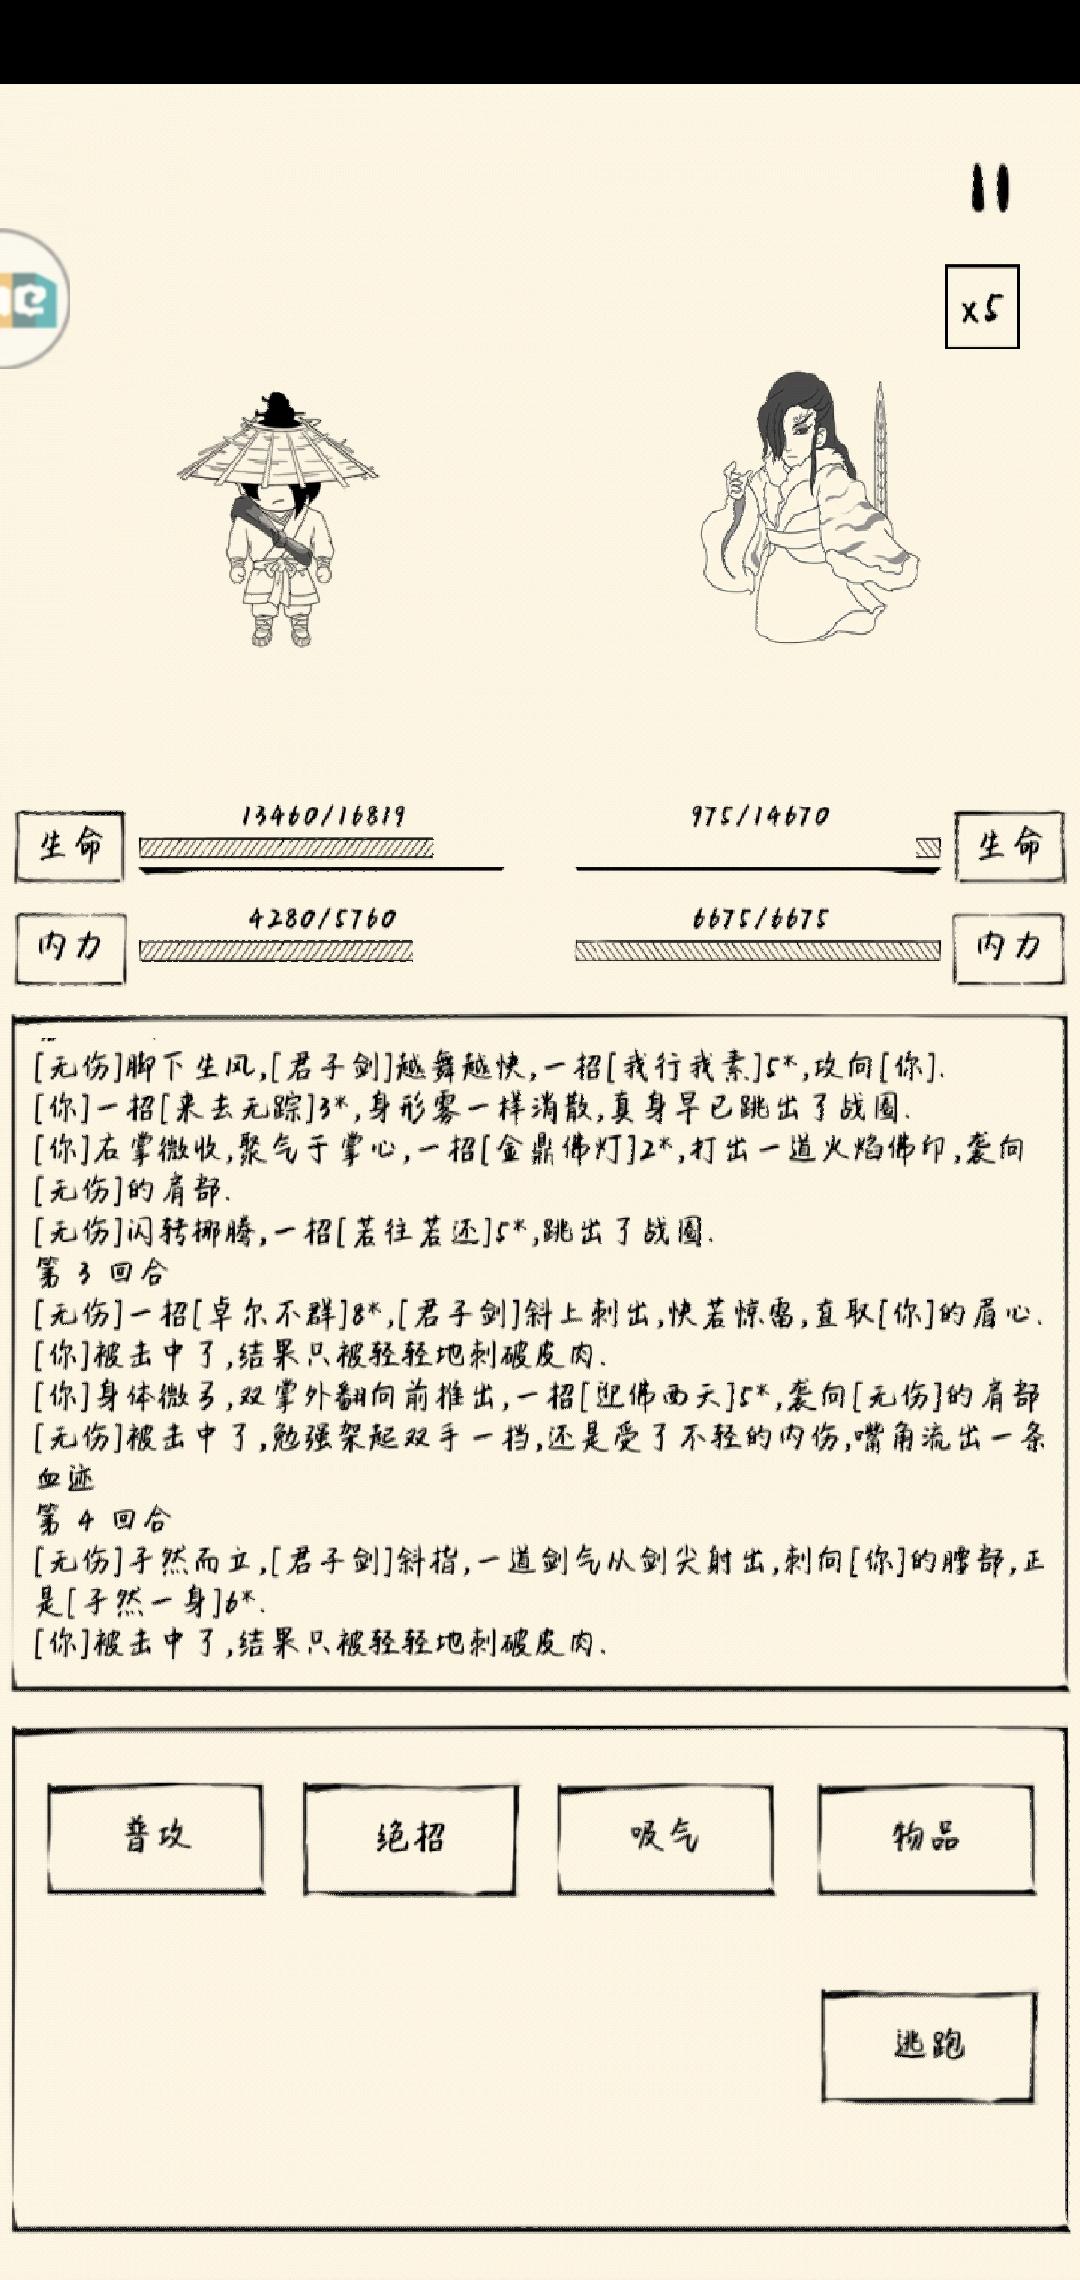 x5
13460/16819
975/14670
生命
生命
4280/5760
6675/6675
内力
内力
[无伤]脚下生风,[君子剑]越舞越快,一招[我行我素]5*,攻向[你].
[你]一招[来去无踪]3*,身形雾一样消散,真身早已跳出了战圈.
[你]右掌微收,聚气于掌心,一招[金鼎佛灯]2*,打出一道火焰佛印,袭向
[无伤]的肩部.
[无伤]闪转挪腾,一招[若往若还]5*,跳出了战圈.
第 3 回合
[无伤]一招[卓尔不群]8*,[君子剑]斜上刺出,快若惊雷,直取[你]的眉心.
[你]被击中了,结果只被轻轻地刺破皮肉.
[你]身体微弓,双掌外翻向前推出,一招[迎佛西天]5*,袭向[无伤]的肩部
[无伤]被击中了,勉强架起双手一挡,还是受了不轻的内伤,嘴角流出一条
血迹
第 4 回合
[无伤]孑然而立,[君子剑]斜指,一道剑气从剑尖射出,刺向[你]的腰部,正
是[孑然一身]6*.
[你]被击中了,结果只被轻轻地刺破皮肉.
普攻
绝招
吸气
物品
逃跑